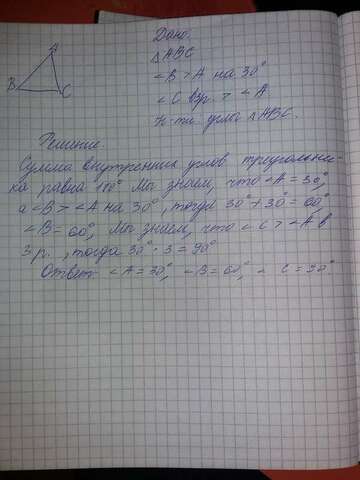 Дано:
A
△ABC
∠B > A на 30°
B
C
∠C в 3 р. > ∠A
Н-ти: углы △ABC.
Решение:
Сумма внутренних углов треугольни-
ка равна 180° Мы знаем, что ∠A = 30°,
а ∠B > ∠A на 30°, тогда 30° + 30° = 60°
∠B = 60°, Мы знаем, что ∠C > ∠A в
3 р., тогда 30° · 3 = 90°
Ответ: ∠A = 30°, ∠B = 60°, ∠C = 90°